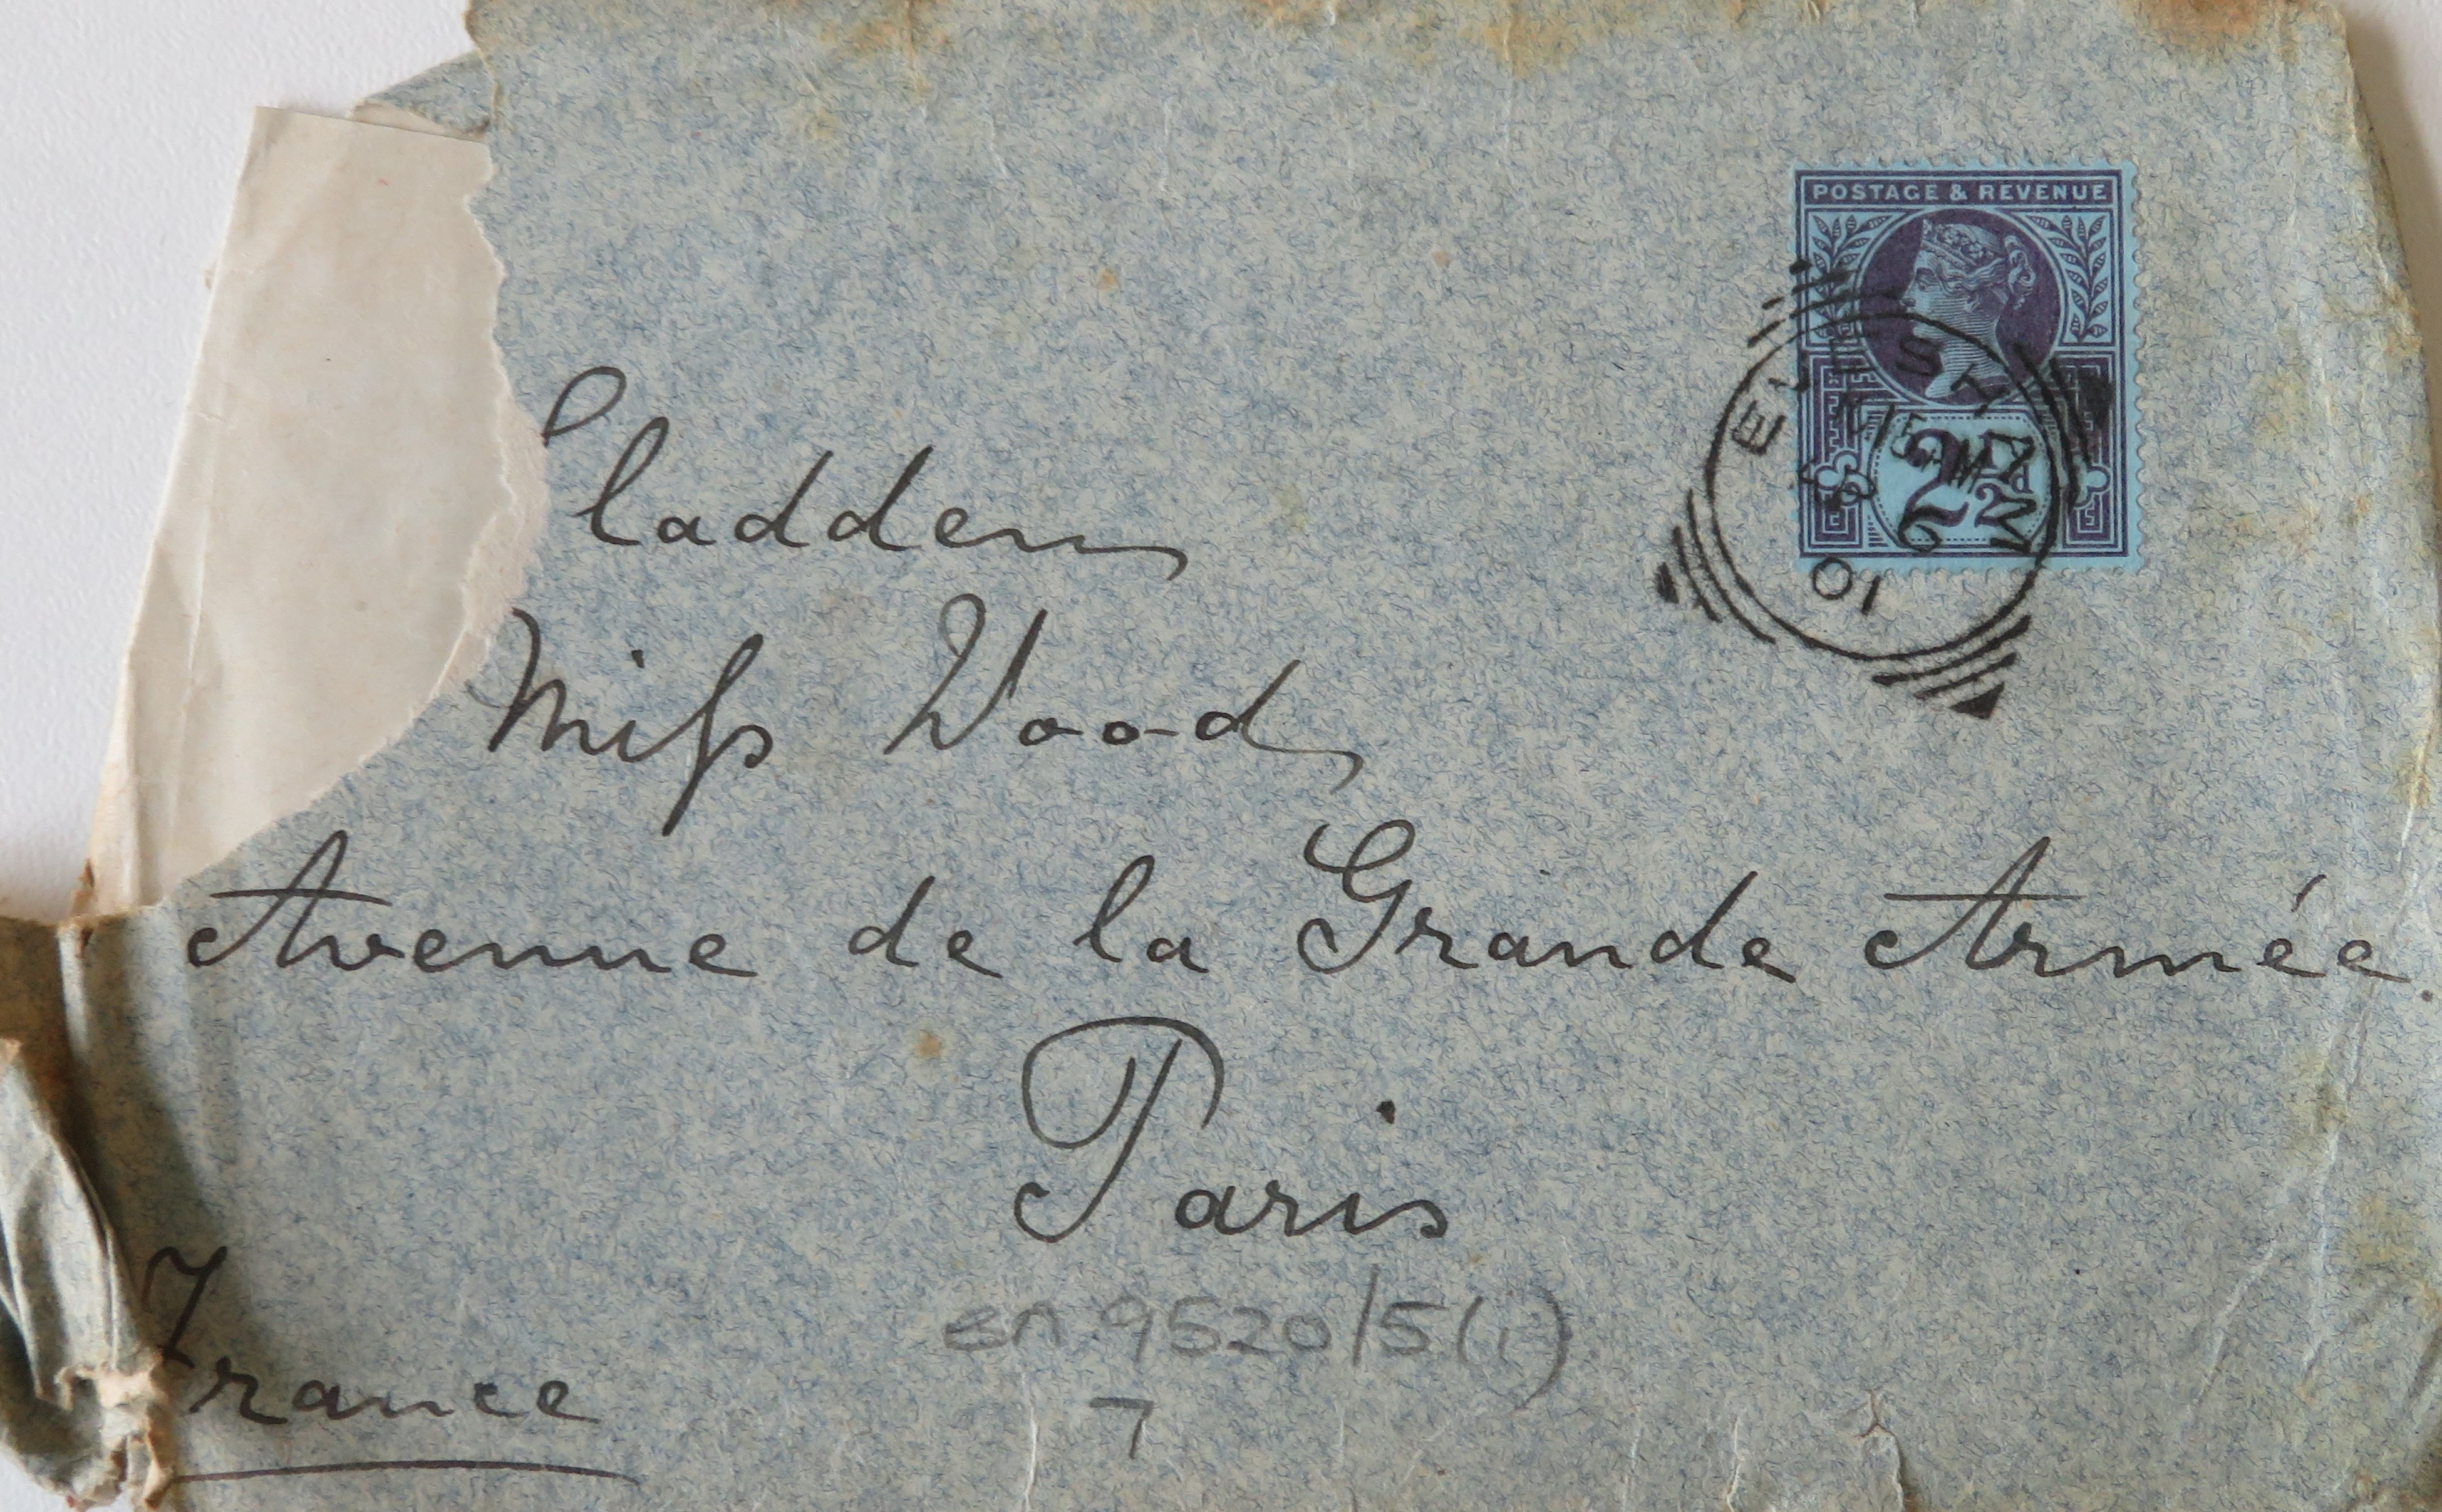 POSTAGE & REVENUE
2½d
01
ladden
Miss Wood
Avenue de la Grande Armée.
Paris
France
en 9520/5(i)
7